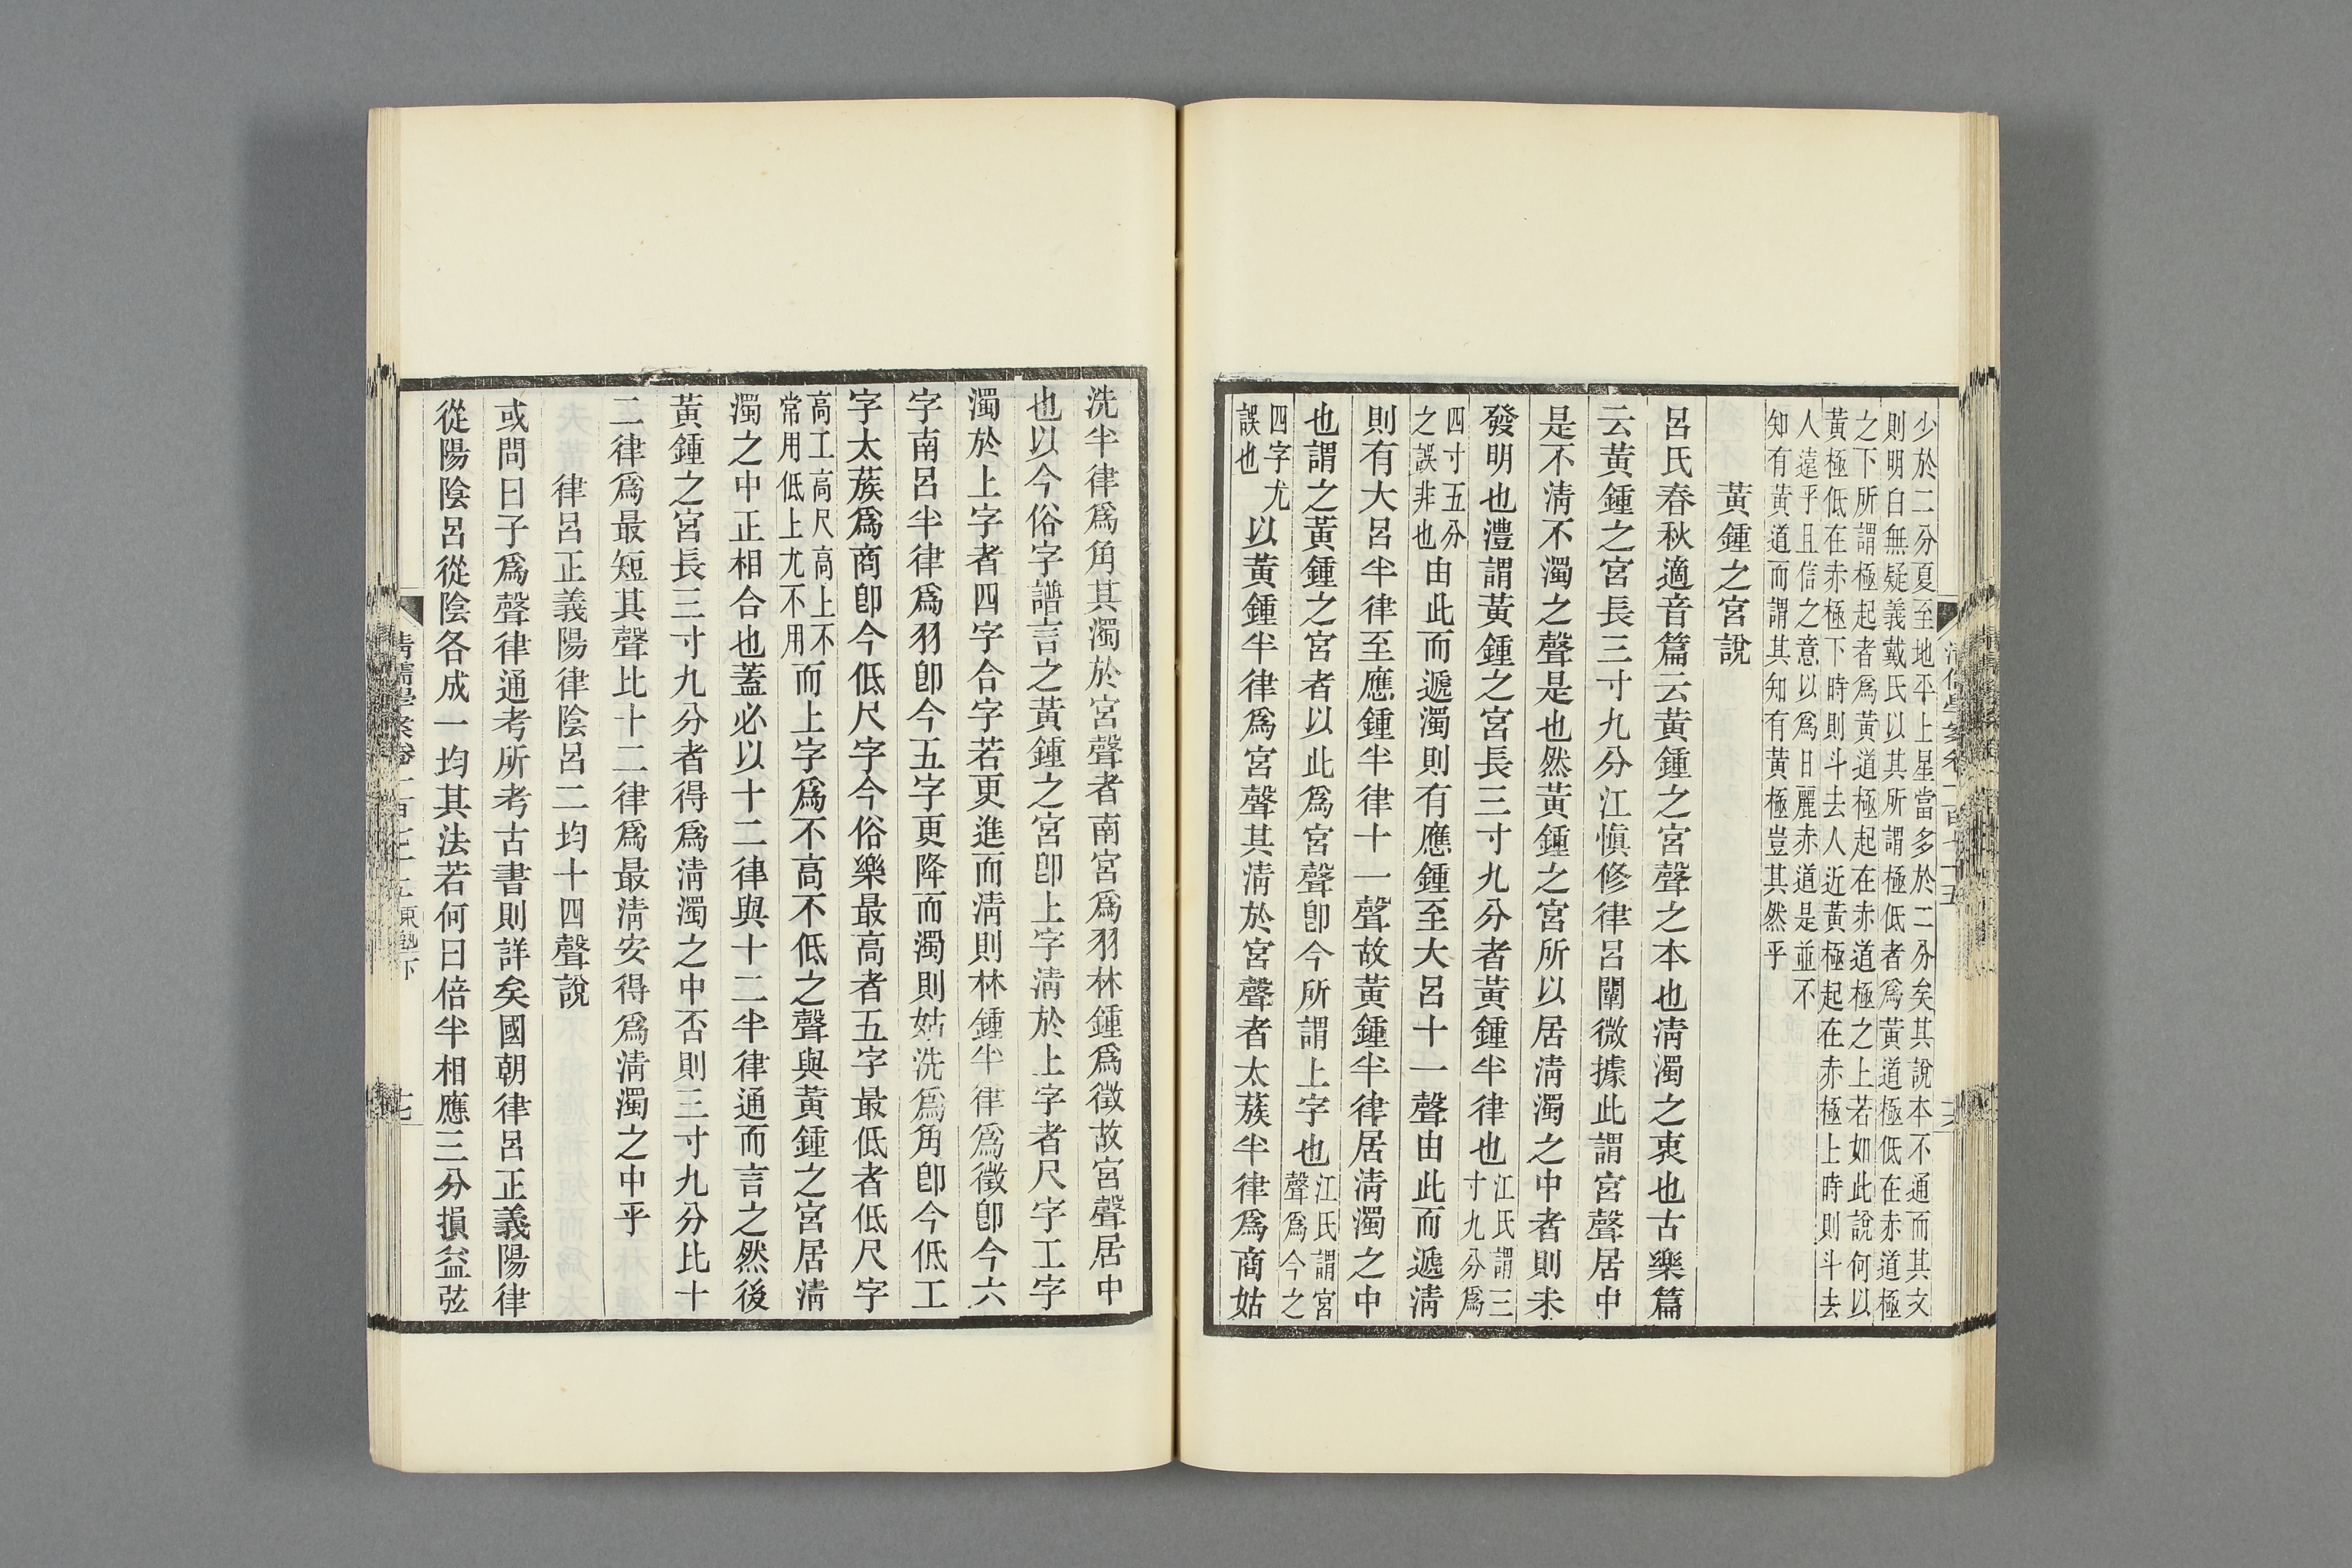 少於二分夏至地平上星當多於二分矣其說本不通而其文
則明白無疑義戴氏以其所謂極低者爲黃道極低在赤道極
之下所謂極起者爲黃道極起在赤道極之上若如此說何以
黃極低在赤極下時則斗去人近黃極起在赤極上時則斗去
人遠乎且信之意以爲日麗赤道是並不
知有黃道而謂其知有黃極豈其然乎
黃鍾之宮說
呂氏春秋適音篇云黃鍾之宮聲之本也淸濁之衷也古樂篇
云黃鍾之宮長三寸九分江愼修律呂闡微據此謂宮聲居中
是不淸不濁之聲是也然黃鍾之宮所以居淸濁之中者則未
發明也澧謂黃鍾之宮長三寸九分者黃鍾半律也江氏謂三
寸九分爲
四寸五分
之誤非也由此而遞濁則有應鍾至大呂十一聲由此而遞淸
則有大呂半律至應鍾半律十一聲故黃鍾半律居淸濁之中
也謂之黃鍾之宮者以此爲宮聲卽今所謂上字也江氏謂宮
聲爲今之
四字尤
誤也以黃鍾半律爲宮聲其淸於宮聲者太蔟半律爲商姑
洗半律爲角其濁於宮聲者南宮爲羽林鍾爲徵故宮聲居中
也以今俗字譜言之黃鍾之宮卽上字淸於上字者尺字工字
濁於上字者四字合字若更進而淸則林鍾半律爲徵卽今六
字南呂半律爲羽卽今五字更降而濁則姑洗爲角卽今低工
字太蔟爲商卽今低尺字今俗樂最高者五字最低者低尺字
高工高尺高上不
常用低上尤不用而上字爲不高不低之聲與黃鍾之宮居淸
濁之中正相合也蓋必以十二律與十二半律通而言之然後
黃鍾之宮長三寸九分者得爲淸濁之中否則三寸九分比十
二律爲最短其聲比十二律爲最淸安得爲淸濁之中乎
律呂正義陽律陰呂二均十四聲說
或問曰子爲聲律通考所考古書則詳矣國朝律呂正義陽律
從陽陰呂從陰各成一均其法若何曰倍半相應三分損益弦
淸儒學案卷一百七十五東塾下
十七